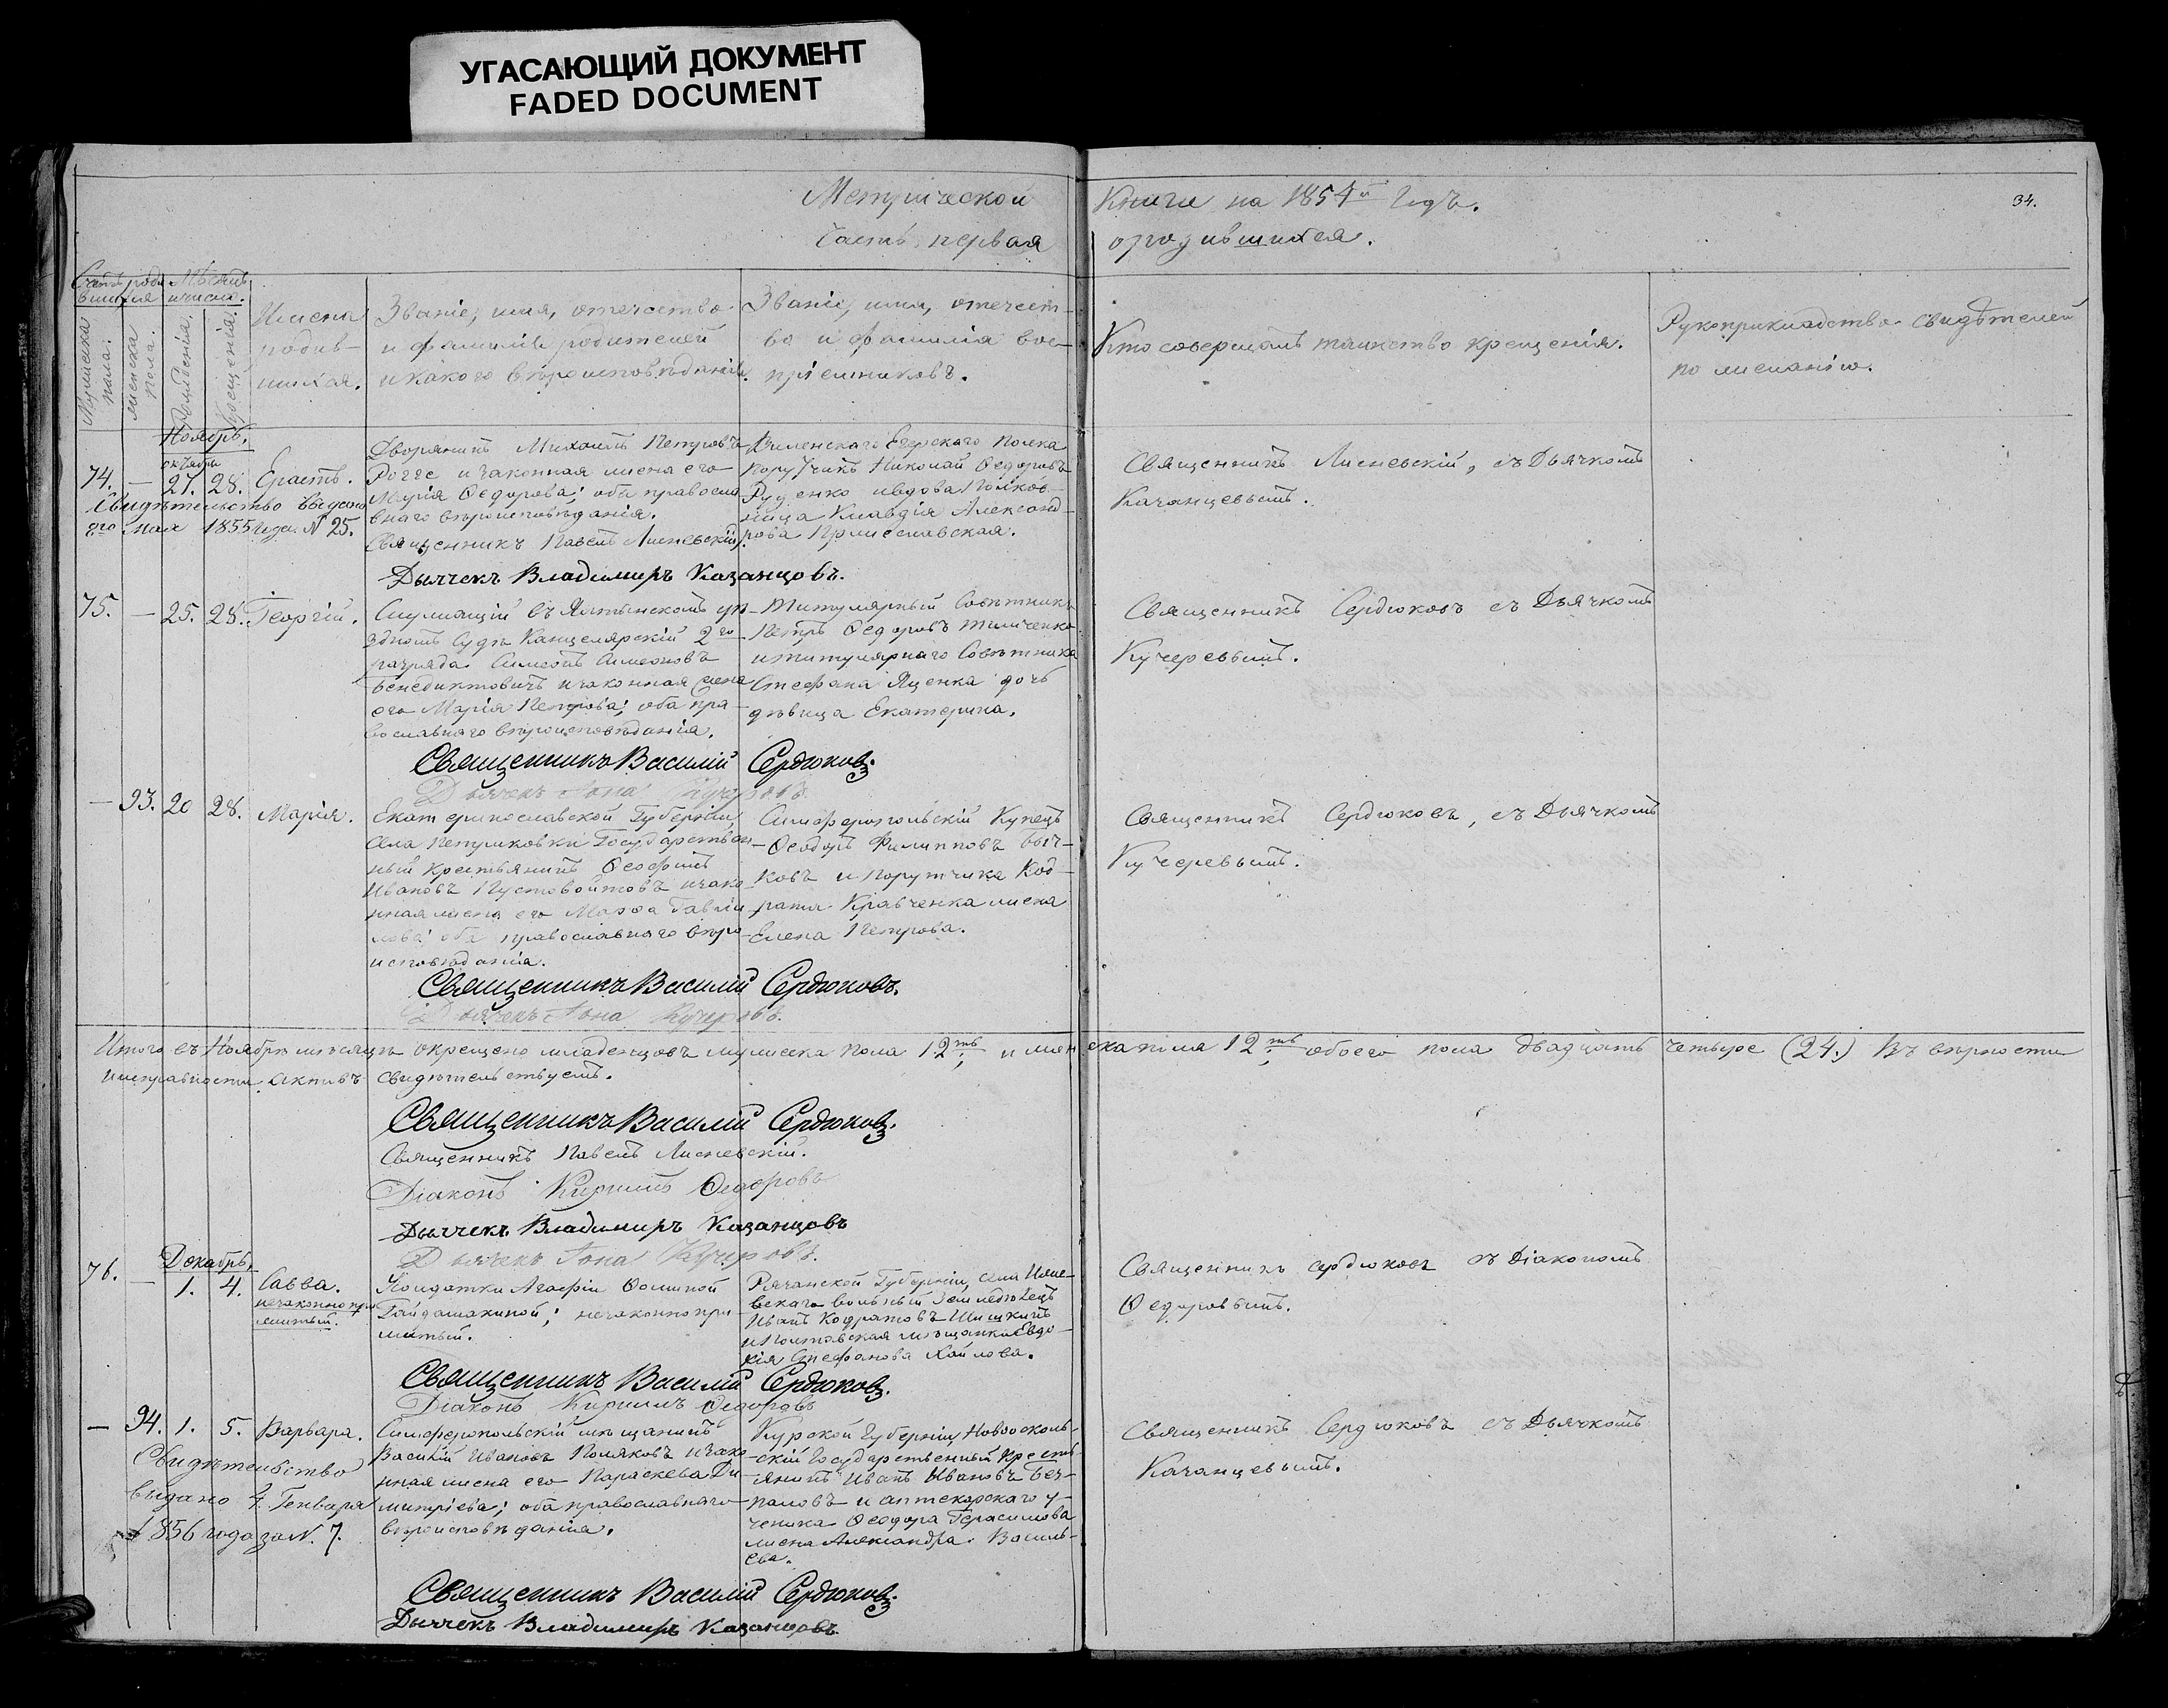 УГАСАЮЩИЙ ДОКУМЕНТ
FADED DOCUMENT
Метрической
Книги на 1854й Годъ.
34.
Часть первая
о родившихся.
Счетъ роди-
вшихся
Мѣсяцъ
и число.
Мужеска
пола.
женска
пола.
Рожденія.
Крещенія.
Имена
родив-
шихся.
Званіе, имя, отчество
и фамилія родителей
и какого вѣроисповѣданія.
Званіе, имя, отечест-
во и фамилія вос-
пріемниковъ.
Кто совершалъ таинство крещенія.
Рукоприкладство свидѣтелей
по желанію.
Ноябрь.
октября
74. — 27. 28. Ерастъ.
Свидѣтельство выдано
мая 1855 года N 25.
Дворянинъ Михаилъ Петровъ
и законная жена его
Марія Ѳедорова; оба правосла
внаго вѣроисповѣданія.
Священникъ Павелъ Лисневскій
Дьячекъ Владимиръ Казанцовъ.
Виленскаго Егерскаго полка
Поручикъ Николай Ѳедоровъ
Руденко и вдова Полков-
ница Клавдія Александ-
рова
Священникъ Лисневскій, съ Дьячкомъ
Казанцевымъ.
75. — 25. 28. Георгій.
Служащій въ Ялтинскомъ уѣ-
здномъ Судѣ Канцелярскій 2го
разряда Симеонъ Симеоновъ
Бенедиктовичъ и законная жена
его Марія Петрова; оба пра-
вославнаго вѣроисповѣданія.
Священникъ Василій Сердюковъ.
Дьячекъ Іона Кучеровъ.
Титулярный Совѣтникъ
Петръ Ѳедоровъ Тимченко
и титулярнаго Совѣтника
Стефана Яценка дочь
дѣвица Екатерина.
Священникъ Сердюковъ съ Дьячкомъ
Кучеревымъ.
— 93. 20 28. Марія.
Екатеринославской Губерніи,
Села Петриковки Государствен-
ный крестьянинъ Ѳеофилъ
Ивановъ Пустовойтовъ и зако-
нная жена его Марѳа Гаври
лова; оба православнаго вѣро-
исповѣданія.
Священникъ Василій Сердюковъ.
Дьячекъ Іона Кучеровъ.
Симферопольскій Купецъ
Ѳеодоръ Филипповъ Быч-
ковъ и Порутчика Код-
рата Кравченка жена
Елена Петрова.
Священникъ Сердюковъ, съ Дьячкомъ
Кучеревымъ.
Итого въ Ноябрѣ мѣсяцѣ окрещено младенцовъ мужеска пола 12ть, и женска пола 12ть, обоего пола двадцать четыре (24.) Въ вѣрности
и исправности актовъ свидѣтельствуемъ.
Священникъ Василій Сердюковъ.
Священникъ Павелъ Лисневскій.
Діаконъ Кириллъ Ѳедоровъ
Дьячекъ Владимиръ Казанцовъ
Дьячекъ Іона Кучеровъ.
Декабрь.
76. — 1. 4. Савва.
незаконнопри
житый.
Солдатки Агафіи Ѳоминой
Гайдамакиной; незаконнопри-
житый.
Священникъ Василій Сердюковъ.
Діаконъ Кириллъ Ѳедоровъ
Рязанской Губерніи, села
вскаго вольный Земледѣлецъ
Иванъ Кодратовъ Шишкинъ
и Полтавская мѣщанка Евдо-
кія Стефанова
Священникъ Сердюковъ съ Діакономъ
Ѳедоровымъ.
— 94. 1. 5. Варвара.
Свидѣтельство
выдано 4. Генваря
1856 года за N. 7.
Симферопольскій мѣщанинъ
Василій Ивановъ Поляковъ и зако
нная жена его Параскева Ди-
митріева; оба православнаго
вѣроисповѣданія.
Священникъ Василій Сердюковъ.
Дьячекъ Владимиръ Казанцовъ.
Курской Губерніи Новооскол-
скій Государственный Кресть-
янинъ Иванъ Ивановъ Без-
паловъ и аптекарскаго у-
ченика Ѳеодора Герасимова
жена Александра Василь-
ева.
Священникъ Сердюковъ съ Дьячкомъ
Казанцевымъ.